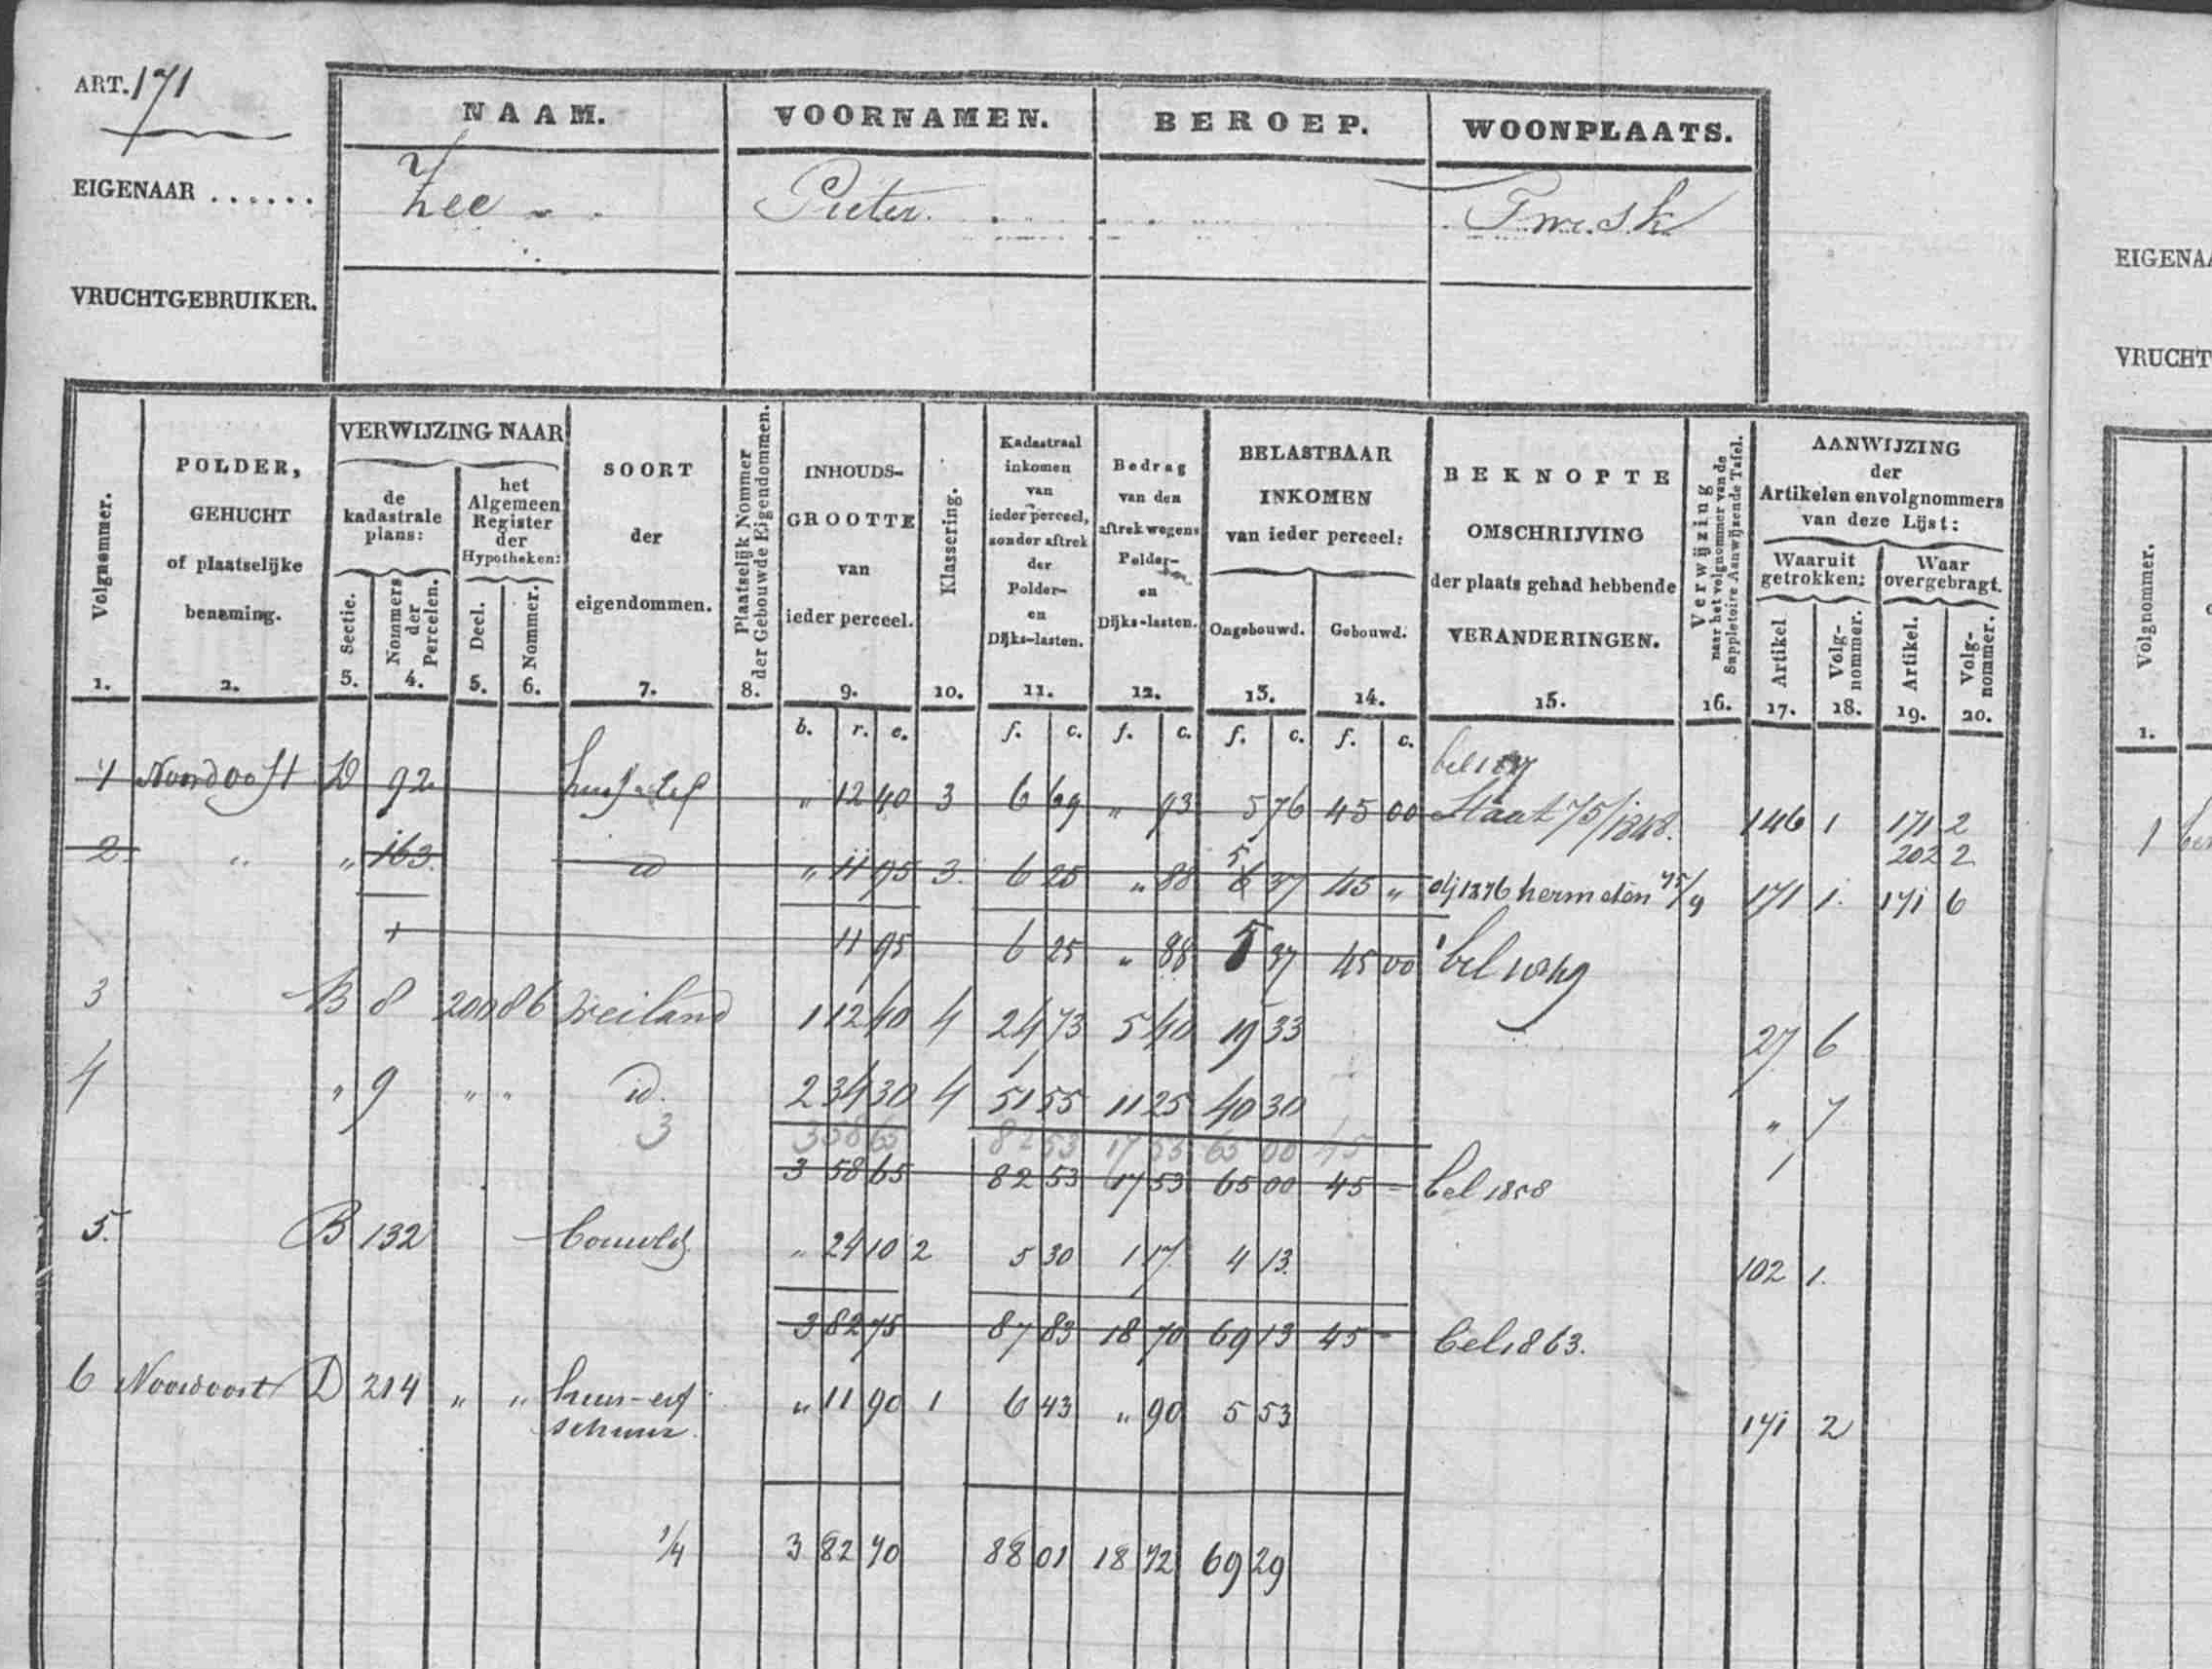 ART. 171
NAAM. VOORNAMEN. BEROEP. WOONPLAATS.
EIGENAAR ...... Zee Pieter. Twisk
VRUCHTGEBRUIKER.
Volgnommer. 1.
POLDER, GEHUCHT of plaatselijke benaming. 2.
VERWIJZING NAAR
de kadastrale plans:
Sectie. 3.
Nommers der Percelen. 4.
het Algemeen Register der Hypotheken:
Deel. 5.
Nommer. 6.
SOORT der eigendommen. 7.
Plaatselijk Nommer der Gebouwde Eigendommen. 8.
INHOUDS-GROOTTE van ieder perceel. 9.
Klassering. 10.
Kadastraal inkomen van ieder perceel, zonder aftrek der Polder- en Dijks-lasten. 11.
Bedrag van den aftrek wegens Polder- en Dijks-lasten. 12.
BELASTBAAR INKOMEN van ieder perceel:
Ongebouwd. 13.
Gebouwd. 14.
BEKNOPTE OMSCHRIJVING der plaats gehad hebbende VERANDERINGEN. 15.
Verwijzing naar het volgnommer van de Suppletoire Aanwijzende Tafel. 16.
AANWIJZING der Artikelen en volgnommers van deze Lijst:
Waaruit getrokken:
Artikel 17.
Volg-nommer. 18.
Waar overgebragt.
Artikel. 19.
Volg-nommer. 20.
b. r. e. f. c. f. c. f. c. f. c.
1 Noordoost D 92 " 12 40 3 6 69 " 93 5 76 45 00 Staat 75/1848. 146 1 171 2
202 2
2 " " 163 id " 11 95 3. 6 25 " 88 5 37 45 " 171 1. 171 6
1 11 95 6 25 " 88 5 37 45 00 bel 1849
3 B 8 200 86 weiland 1 12 40 4 24 73 5 40 19 33 27 6
4 " 9 " " id. 2 34 30 4 51 55 11 25 40 30 " 7
3 3 58 65 82 53 17 53 65 00 45
3 58 65 82 53 17 53 65 00 45 - bel 1858
5. B 132 bouwld " 24 10 2 5 30 1 17 4 13. 102 1.
3 82 75 87 83 18 70 69 13 45 - bel 1863.
6 Noordoost D 214 " " huis-erf " 11 90 1 6 43 " 90 5 53 171 2
schuur.
1/4 3 82 70 88 01 18 72 69 29
EIGENA
VRUCHT
Volgnommer.
1.
1